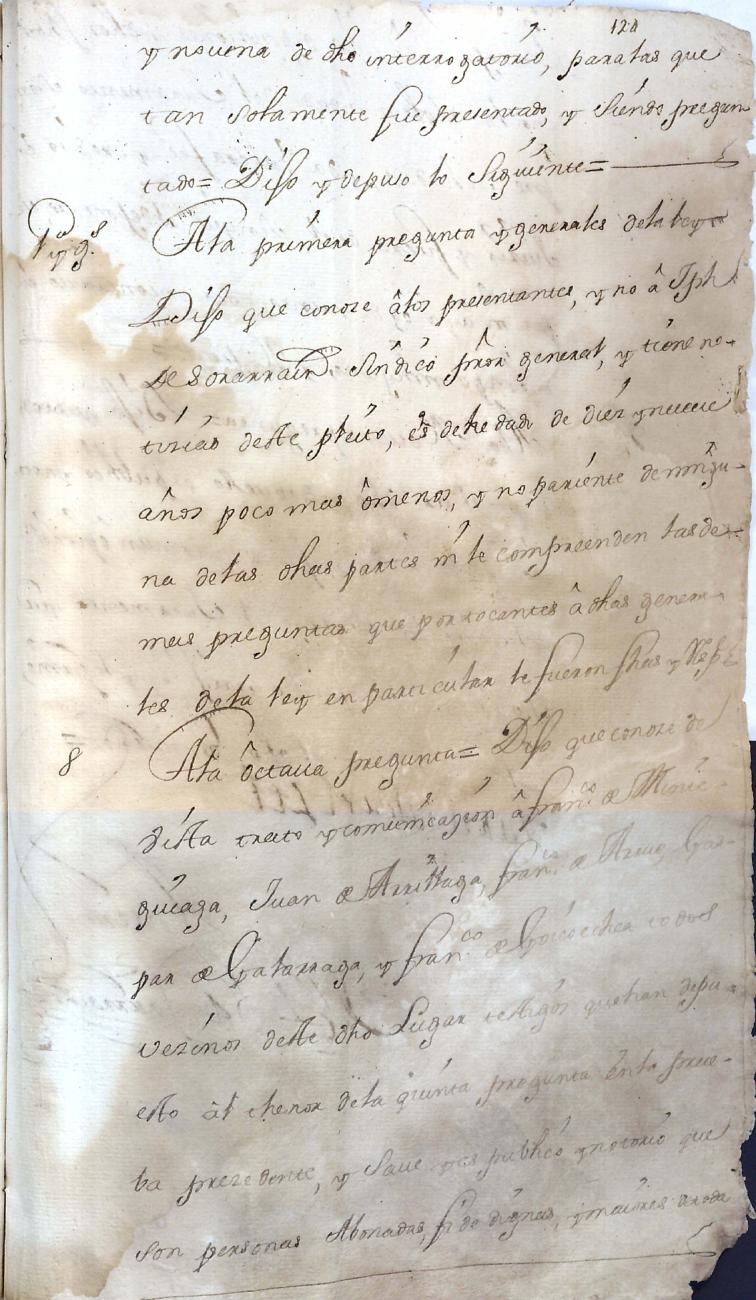 124
y novena de dho interrogatorio, paralas que
tan solamente fue presentado, y siendo pregun
tado= Dijo y depuso lo siguiente=
1ª y gs. Ala primera pregunta y generales dela ley
Dijo que conoze âlos presentantes, y no â Jph
de Sorarrain sindico pror general, y tiene no-
ticias deste pleito, es de hedad de diez y nueue
años poco mas ômenos, y no pariente de ningu-
na delas dhas partes ni le compreenden las de-
mas preguntas que por tocantes â dhas genera-
les dela ley en particular le fueron fhas y
8 Ala ôctaua pregunta= Dijo que conoze de
vista trato y comunicazion â franco de
gueaga, Juan de Arrillaga, franco de
par de Galarraga, y franco de Goicoechea todos
vezinos deste dho Lugar testigos que han depu-
esto âl thenor dela quinta pregunta enla prue-
ba prezedente, y saue y es publico y notorio que
son personas Abonadas, fidedignas, y maiores de toda